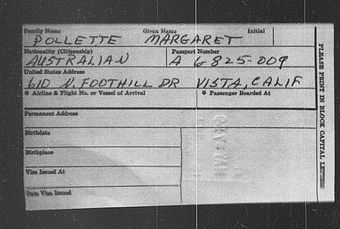 Family Name Given Name Initial
POLLETTE MARGARET
Nationality (Citizenship) Passport Number
AUSTRALIAN A G825-009
United States Address
610 N. FOOTHILL DR VISTA, CALIF
Airline & Flight No. or Vessel of Arrival Passenger Boarded At
Permanent Address
Birthdate
Birthplace
Visa Issued At
Date Visa Issued
PLEASE PRINT IN BLOCK CAPITAL LETTERS